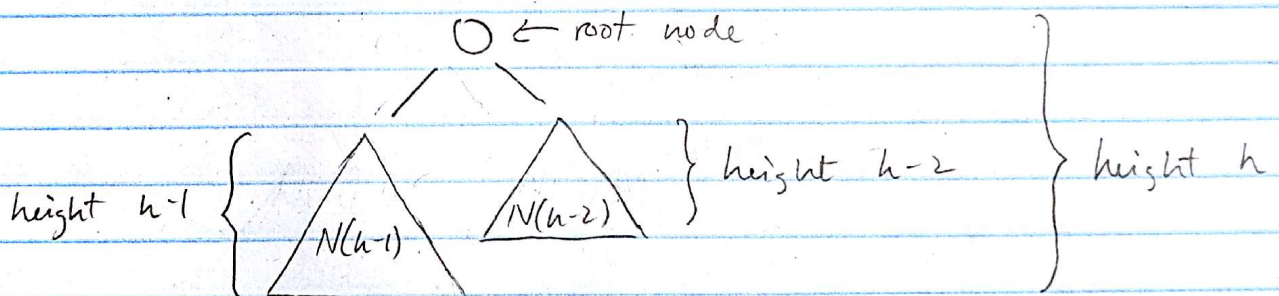 ← root node
height h-1
N(h-1)
N(h-2)
height h-2
height h